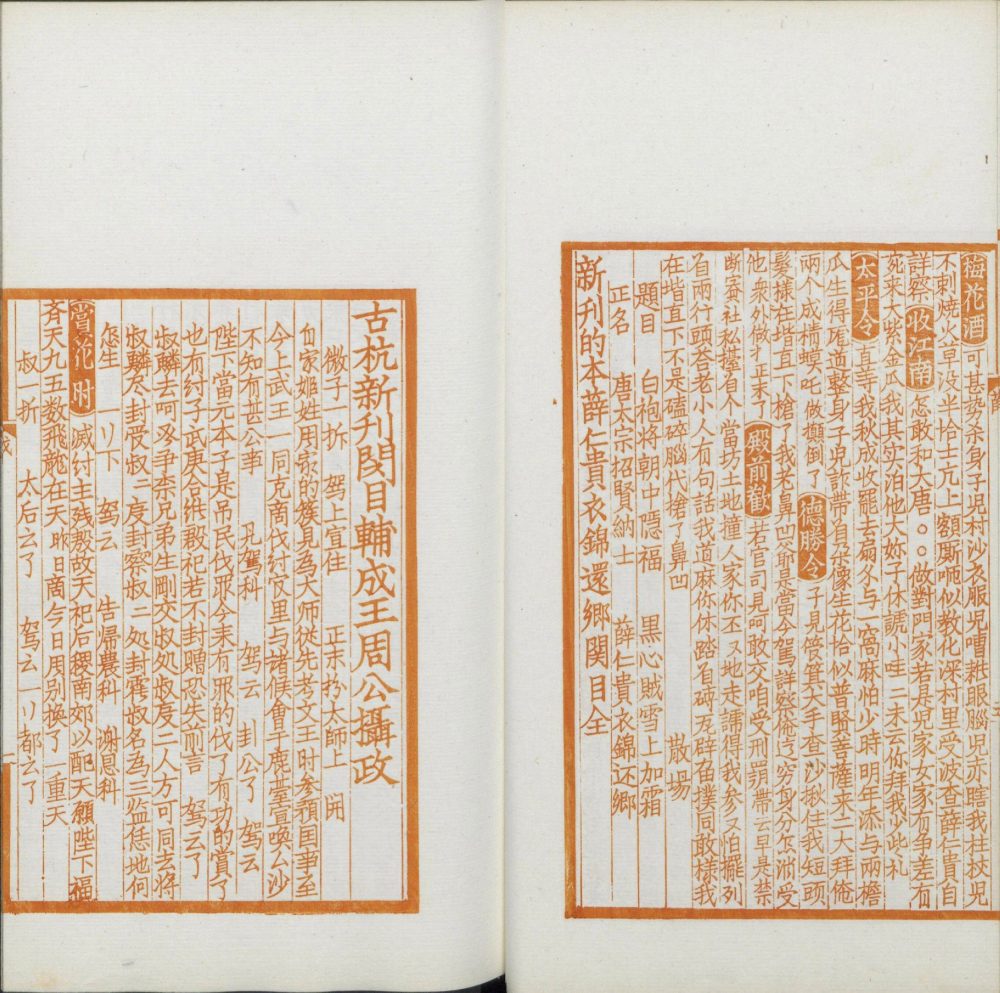 梅花酒 可甚势杀身子児村沙衣服児嘈雜眼腦児赤瞎我桂杖児
不刺燒火早没半恰士亢上額厮哂似教化深村里受波查薛仁貴自
詳察 收江南 怎敢和大唐。。做對門家若是児家女家有爭差有
死來大紫金瓜我其实泊他大妳子休諕小哇二末云你拜我少些礼
太平令 直等我秋成收罷去 与一窩麻怕少時明年添与兩檐
瓜生得庞道整身子児詐帶 朶像生花恰似普賢菩薩來二大拜俺
兩个成精蟆吒做攧倒了 德勝令 子見管箕大手查沙揪住我短頭
髮樣在堦直下搶了我老鼻凹爷是當今駕詳察俺这穷身分尔消受
他衆外做才正末了 殿前歡 若官司見呵敢交咱受刑罰帶云早是禁
断賽社私 自个當坊土地撞人家你不 地走諕得我参又怕擺列
着兩行頭荅老小人有句話我道麻你休踏着磚瓦辟 撲同敢樣我
在堦直下不是磕碎腦代搶了鼻凹 散場
題目 白袍将朝中隱福 黒心賊雪上加霜
正名 唐太宗招賢納士 薛仁貴衣錦还鄉
新刋的本薛仁貴衣錦還鄉関目全
古杭新刋関目輔成王周公攝政
微子一折 駕上宣住 正末扮太師上 開
自家姬姓用家的 見為大师従先考文王时参預国事至
今上武王一同克商伐紂文里与諸候會于鹿臺宣喚么沙
不知有甚公事 見駕科 駕云 封公了 駕云
陛下當元本子是吊民伐罪今末有罪的伐了有功的賞了
也有紂子武庚合继殷祀若不封贈恐失前言 駕云了
叔鱗去呵 争柰兄弟生剛交叔処叔度二人方可同去将
叔鱗尽封受叔二度封察叔二処封霍叔名為三监恁地何
怎生 一リ下 駕云 告帰農科 謝恩科
賞花时 滅紂主残殷故天祀后稷南郊以配天願陛下福
斉天九五数飛龍在天昨日商今日周别换了一重天
叔一折 太后云了 駕云一リ都云了